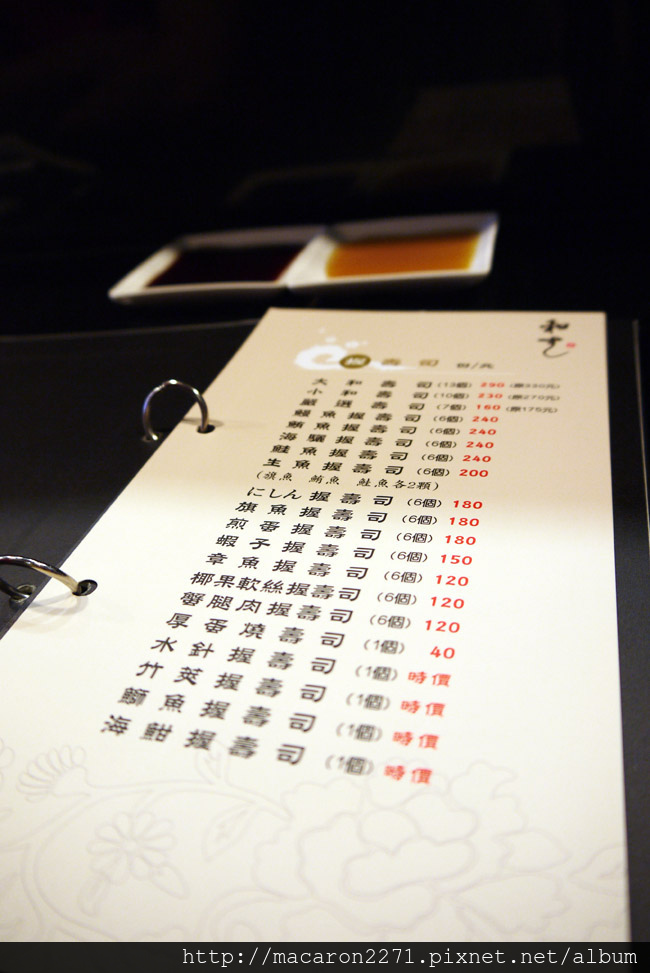 握 壽 司 份/元
大 和 壽 司 (13個) 290 (原330元)
小 和 壽 司 (10個) 230 (原270元)
嚴 選 壽 司 (7個) 160 (原175元)
鰻 魚 握 壽 司 (6個) 240
鮪 魚 握 壽 司 (6個) 240
海 鱺 握 壽 司 (6個) 240
鮭 魚 握 壽 司 (6個) 240
生 魚 握 壽 司 (6個) 200
(旗魚 鮪魚 鮭魚各2顆)
にしん 握 壽 司 (6個) 180
旗 魚 握 壽 司 (6個) 180
煎 蛋 握 壽 司 (6個) 180
蝦 子 握 壽 司 (6個) 150
章 魚 握 壽 司 (6個) 120
椰果軟絲握壽司 (6個) 120
蟹腿肉握壽司 (6個) 120
厚 蛋 燒 壽 司 (1個) 40
水 針 握 壽 司 (1個) 時價
竹 筴 握 壽 司 (1個) 時價
鰤 魚 握 壽 司 (1個) 時價
海 魽 握 壽 司 (1個) 時價
http://macaron2271.pixnet.net/album